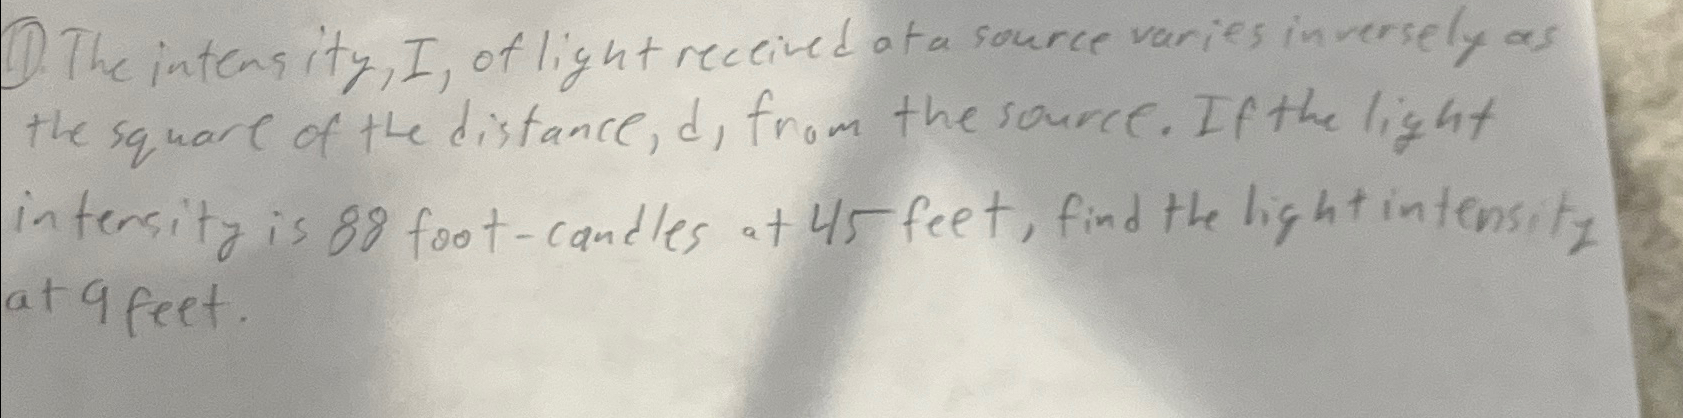 ① The intensity, I, of light received at a source varies inversely as
the square of the distance, d, from the source. If the light
intensity is 88 foot-candles at 45 feet, find the light intensity
at 9 feet.